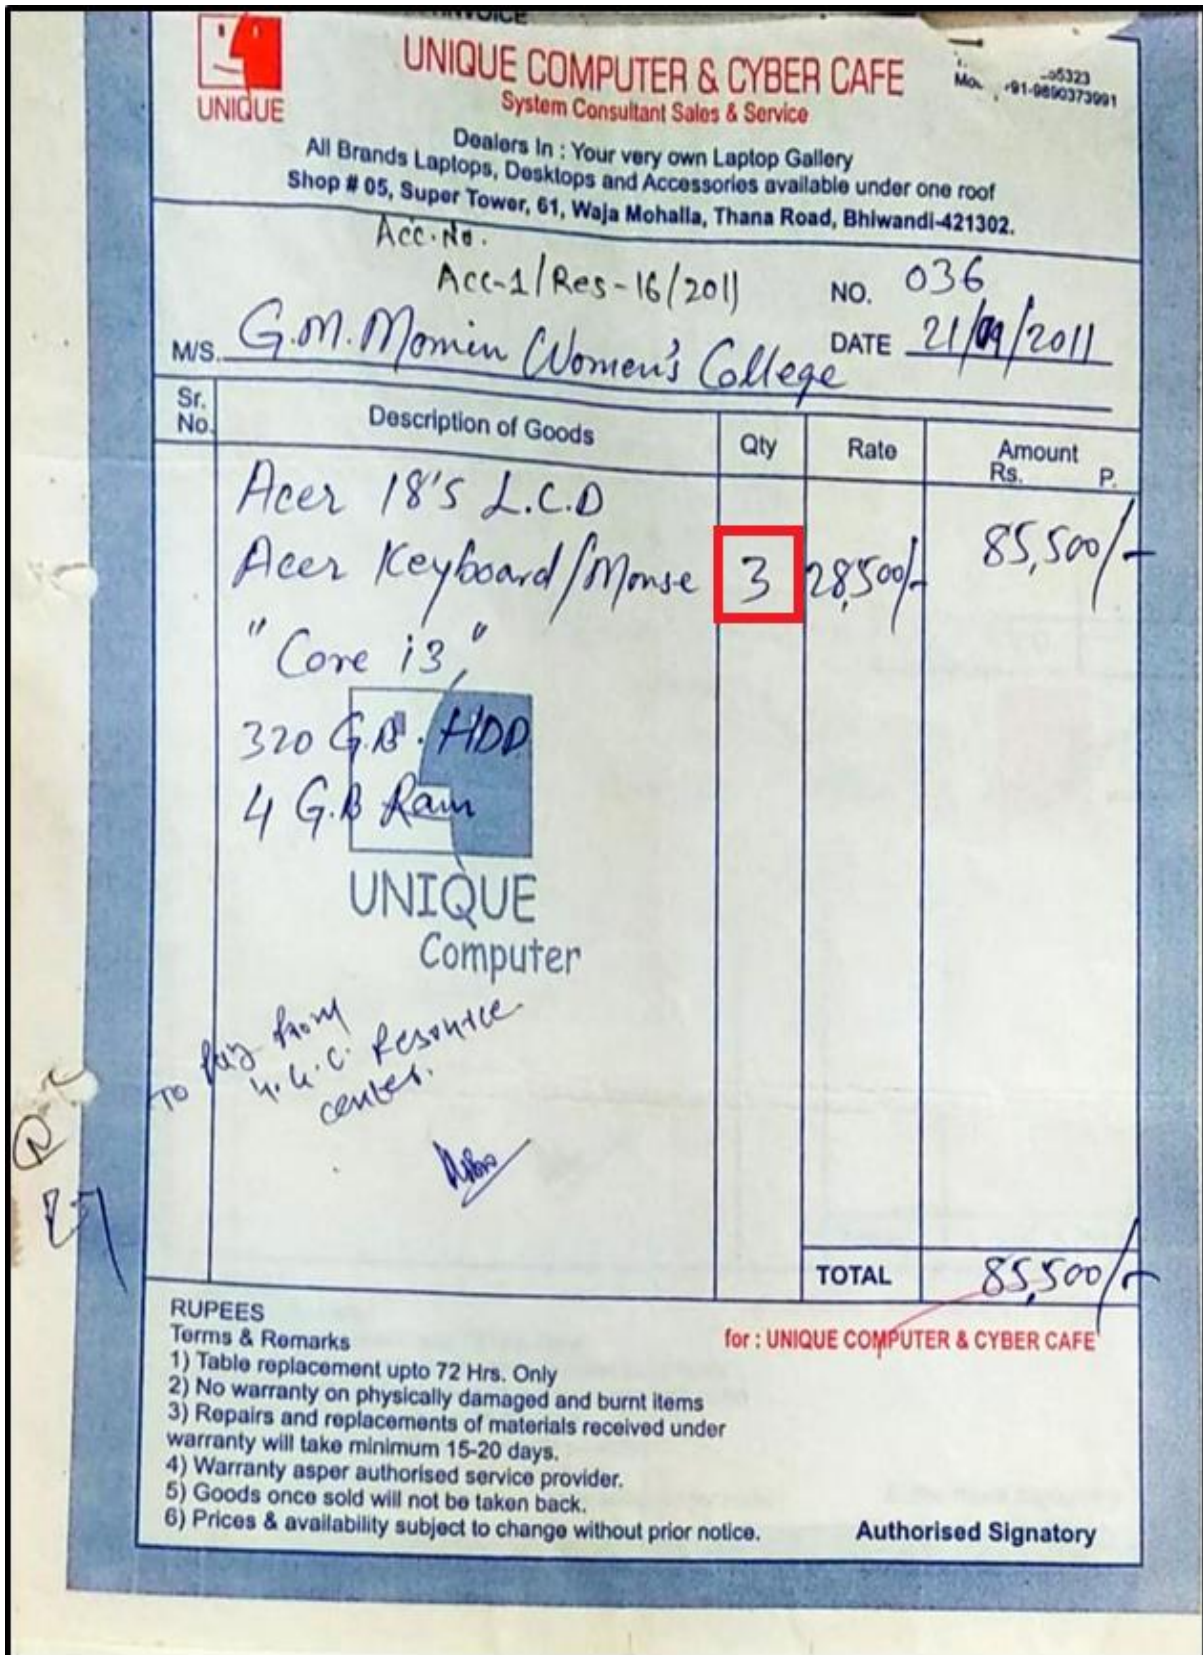 INVOICE
UNIQUE
UNIQUE COMPUTER & CYBER CAFE
System Consultant Sales & Service
5323
+91-9890373991
Dealers In : Your very own Laptop Gallery
All Brands Laptops, Desktops and Accessories available under one roof
Shop # 05, Super Tower, 61, Waja Mohalla, Thana Road, Bhiwandi-421302.
Acc. No.
Acc-1/Res-16/2011
NO. 036
M/S. G.M. Momin Women's College
DATE 21/09/2011
Sr. No. Description of Goods Qty Rate Amount Rs. P.
Acer 18'5 L.C.D
Acer Keyboard/Mouse 3 28,500/- 85,500/-
"Core i3,"
320 G.B. HDD
4 G.B Ram
UNIQUE
Computer
To Pay from
U.G.C. Resource
center.
TOTAL 85,500/-
RUPEES
Terms & Remarks
for : UNIQUE COMPUTER & CYBER CAFE
1) Table replacement upto 72 Hrs. Only
2) No warranty on physically damaged and burnt items
3) Repairs and replacements of materials received under
warranty will take minimum 15-20 days.
4) Warranty asper authorised service provider.
5) Goods once sold will not be taken back.
6) Prices & availability subject to change without prior notice.
Authorised Signatory